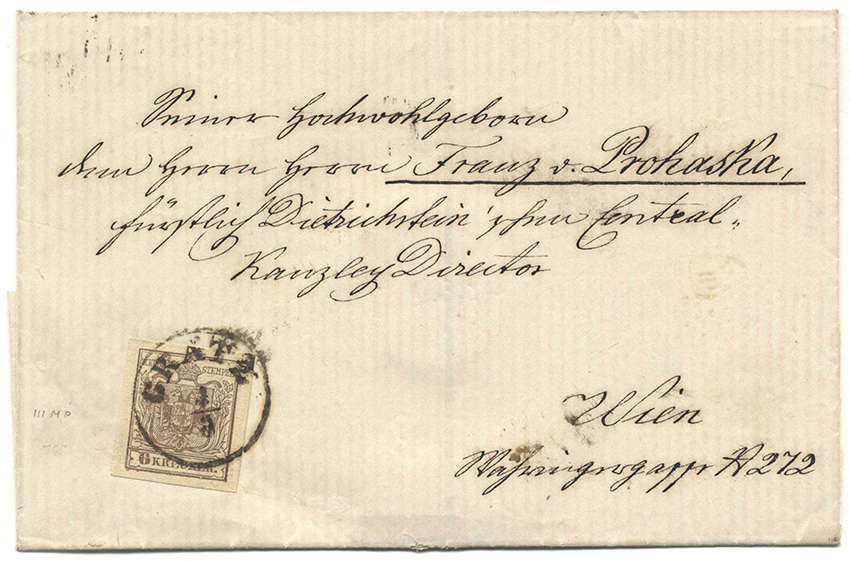 Seiner Hochwohlgeborn
dem Herrn Herrn Franz v. Prohaska,
fürstlich Dietrichstein'schen Central-
Kanzley Director
GRATZ
STEMPEL
1/9
6 KREUZER.
III M P
Wien
Währingergasse N 272